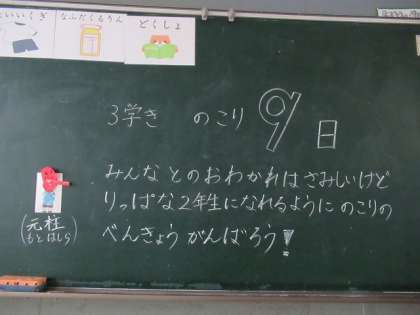 なふだくるりん
どくしょ
3学き のこり 9日
みんなとのおわかれはさみしいけど
りっぱな2年生になれるようにのこりの
べんきょうがんばろう!
(元柱
もとはしら)